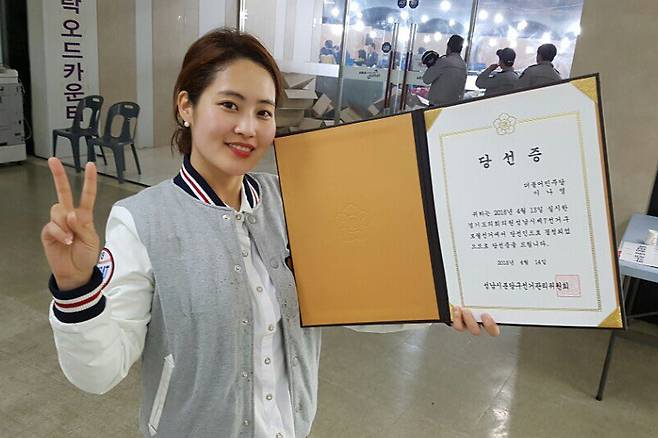 락 오드카운터
당선증
더불어민주당
이나영
귀하는 2016년 4월 13일 실시한
경기도의회의원성남시제7선거구
보궐선거에서 당선인으로 결정되었
으므로 당선증을 드립니다.
2016년 4월 14일
성남시분당구선거관리위원회